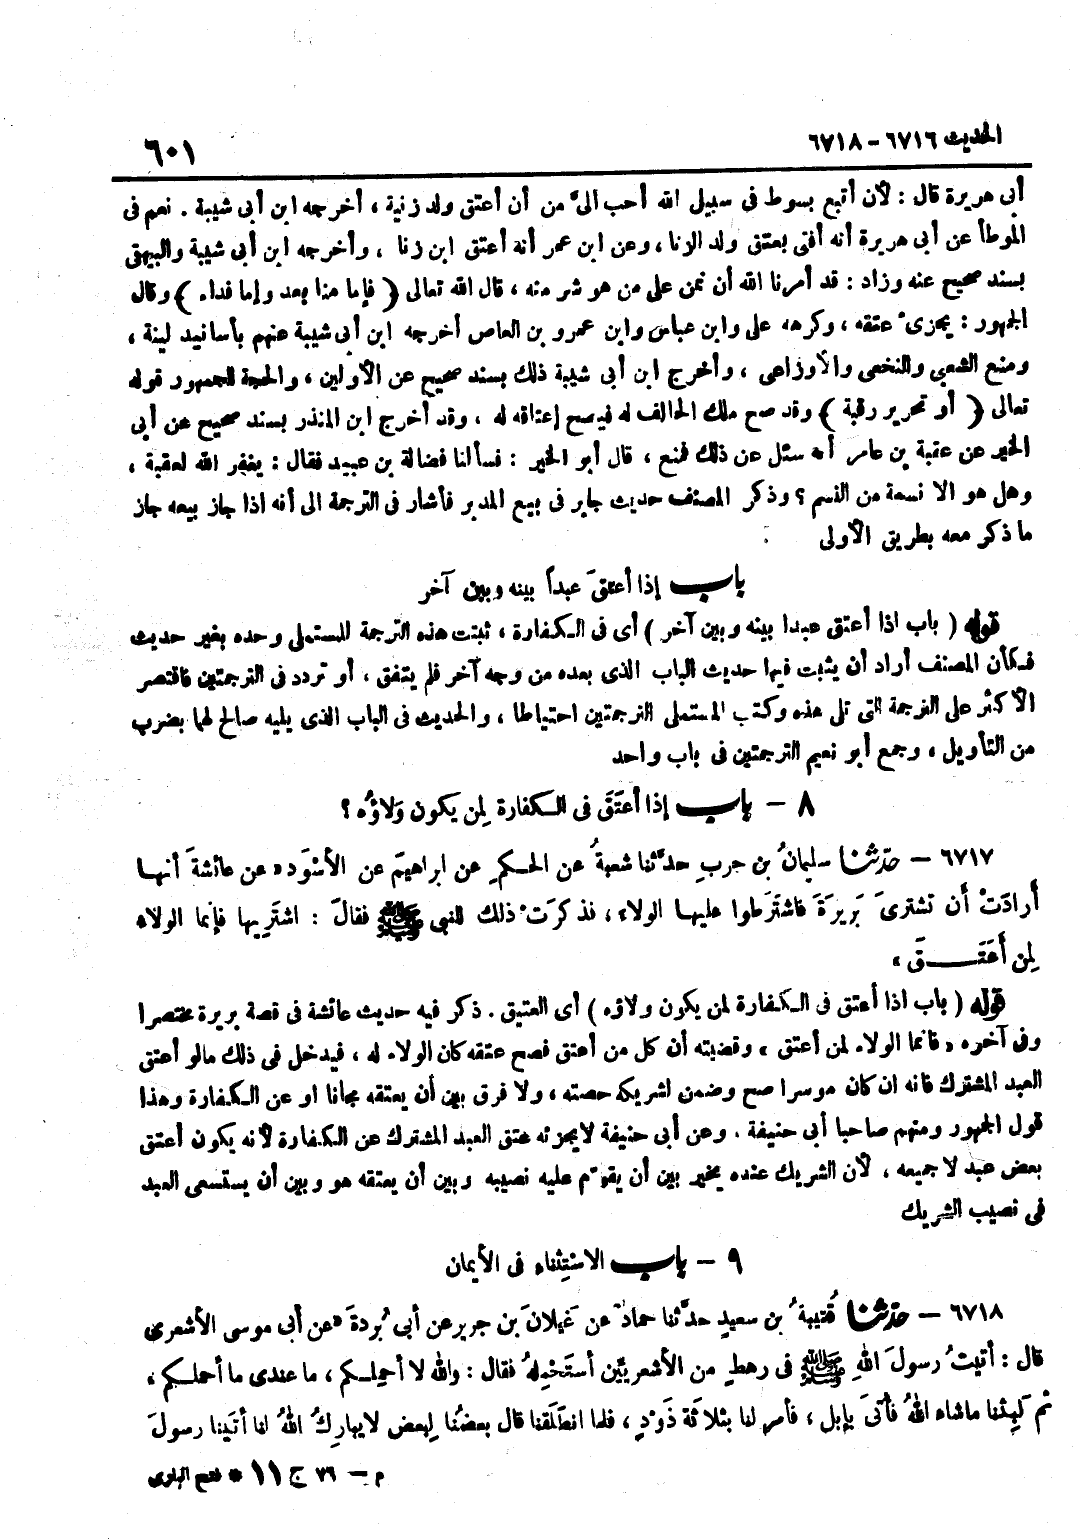 الحديث ٦٧١٦ - ٦٧١٨
٦٠١
أبى هريرة قال : لأن أقبع بسوط فى سبيل الله أحب الىّ من أن أعتق ولد زنية ، أخرجه ابن أبى شيبة . نعم فى
الموطأ عن أبى هريرة أنه أفتى بعتق ولد الزنا ، وعن ابن عمر أنه أعتق ابن زنا ، وأخرجه ابن أبى شيبة والبيهقى
بسند صحيح عنه وزاد : قد أمرنا الله أن نمن على من هو شر منه ، قال الله تعالى ( فإما منا بعد وإما فداء ) وقال
الجمهور : يجزىء عتقه ، وكرهه على وابن عباس وابن عمرو بن العاص أخرجه ابن أبى شيبة عنهم بأسانيد لينة ،
ومنع الشعبى والنخعى والأوزاعى ، وأخرج ابن أبى شيبة ذلك بسند صحيح عن الأولين ، والحجة للجمهور قوله
تعالى ( أو تحرير رقبة ) وقد صح ملك الحالف له فيصح إعتاقه له ، وقد أخرج ابن المنذر بسند صحيح عن أبى
الخير عن عقبة بن عامر أنه سئل عن ذلك فمنع ، قال أبو الخير : فسألنا فضالة بن عبيد فقال : يغفر الله لعقبة ،
وهل هو الا نسمة من النسم ؟ وذكر المصنف حديث جابر فى بيع المدبر فأشار فى الترجمة الى أنه اذا جاز بيعه جاز
ما ذكر معه بطريق الأولى
باب إذا أعتقَ عبداً بينه وبين آخر
قوله ( باب اذا أعتق عبدا بينه وبين آخر ) أى فى الكفارة ، ثبتت هذه الترجمة للمستملى وحده بغير حديث
فكأن المصنف أراد أن يثبت فيها حديث الباب الذى بعده من وجه آخر فلم يتفق ، أو تردد فى الترجمتين فاقتصر
الأكثر على الترجمة التى تلى هذه وكتب المستملى الترجمتين احتياطا ، والحديث فى الباب الذى يليه صالح لهما بضرب
من التأويل ، وجمع أبو نعيم الترجمتين فى باب واحد
٨ - باب إذا أعتَقَ فى الكفارة لِمن يكون وَلاؤُه ؟
٦٧١٧ - حدّثنا سليمانُ بن حربٍ حدَّثنا شعبةُ عن الحكمِ عن ابراهيمَ عن الأسْوَد « عن عائشةَ أنها
أرادَتْ أن تشترىَ بَرِيرَةَ فاشترَطوا عليها الولاء ، فذكرَتْ ذلك للنبى ﷺ فقالَ : اشترِيها فإنما الولاء
لِمن أعتَقَ »
قوله ( باب اذا أعتق فى الكفارة لمن يكون ولاؤه ) أى العتيق . ذكر فيه حديث عائشة فى قصة بريرة مختصرا
وفى آخره « فانما الولاء لمن أعتق » وقضيته أن كل من أعتق فصح عتقه كان الولاء له ، فيدخل فى ذلك مالو أعتق
العبد المشترك فانه ان كان موسرا صح وضمن لشريكه حصته ، ولا فرق بين أن يعتقه مجانا او عن الكفارة وهذا
قول الجمهور ومنهم صاحبا أبى حنيفة . وعن أبى حنيفة لايجزئه عتق العبد المشترك عن الكفارة لأنه يكون أعتق
بعض عبد لا جميعه ، لأن الشريك عنده يخير بين أن يقوّم عليه نصيبه وبين أن يعتقه هو وبين أن يستسعى العبد
فى نصيب الشريك
٩ - باب الاستِثناء فى الأيمان
٦٧١٨ - حدّثنا قُتيبةُ بن سعيدٍ حدَّثنا حمادٌ عن غَيلانَ بن جرير عن أبى بُردةَ « عن أبى موسى الأشعرى
قال : أتيتُ رسولَ اللهِ ﷺ فى رهطٍ من الأشعريِّين أستَحْمِلهُ فقال : والله لا أحمِلكم ، ما عندى ما أحملكم ،
ثم لَبِثنا ماشاء اللهُ فأتىَ بإبل ، فأمر لنا بثلاثة ذَودٍ ، فلما انطلَقنا قال بعضُنا لبعض لايبارِكُ اللهُ لنا أتَينا رسولَ
م - ٧٦ ج ١١ * فتح البارى